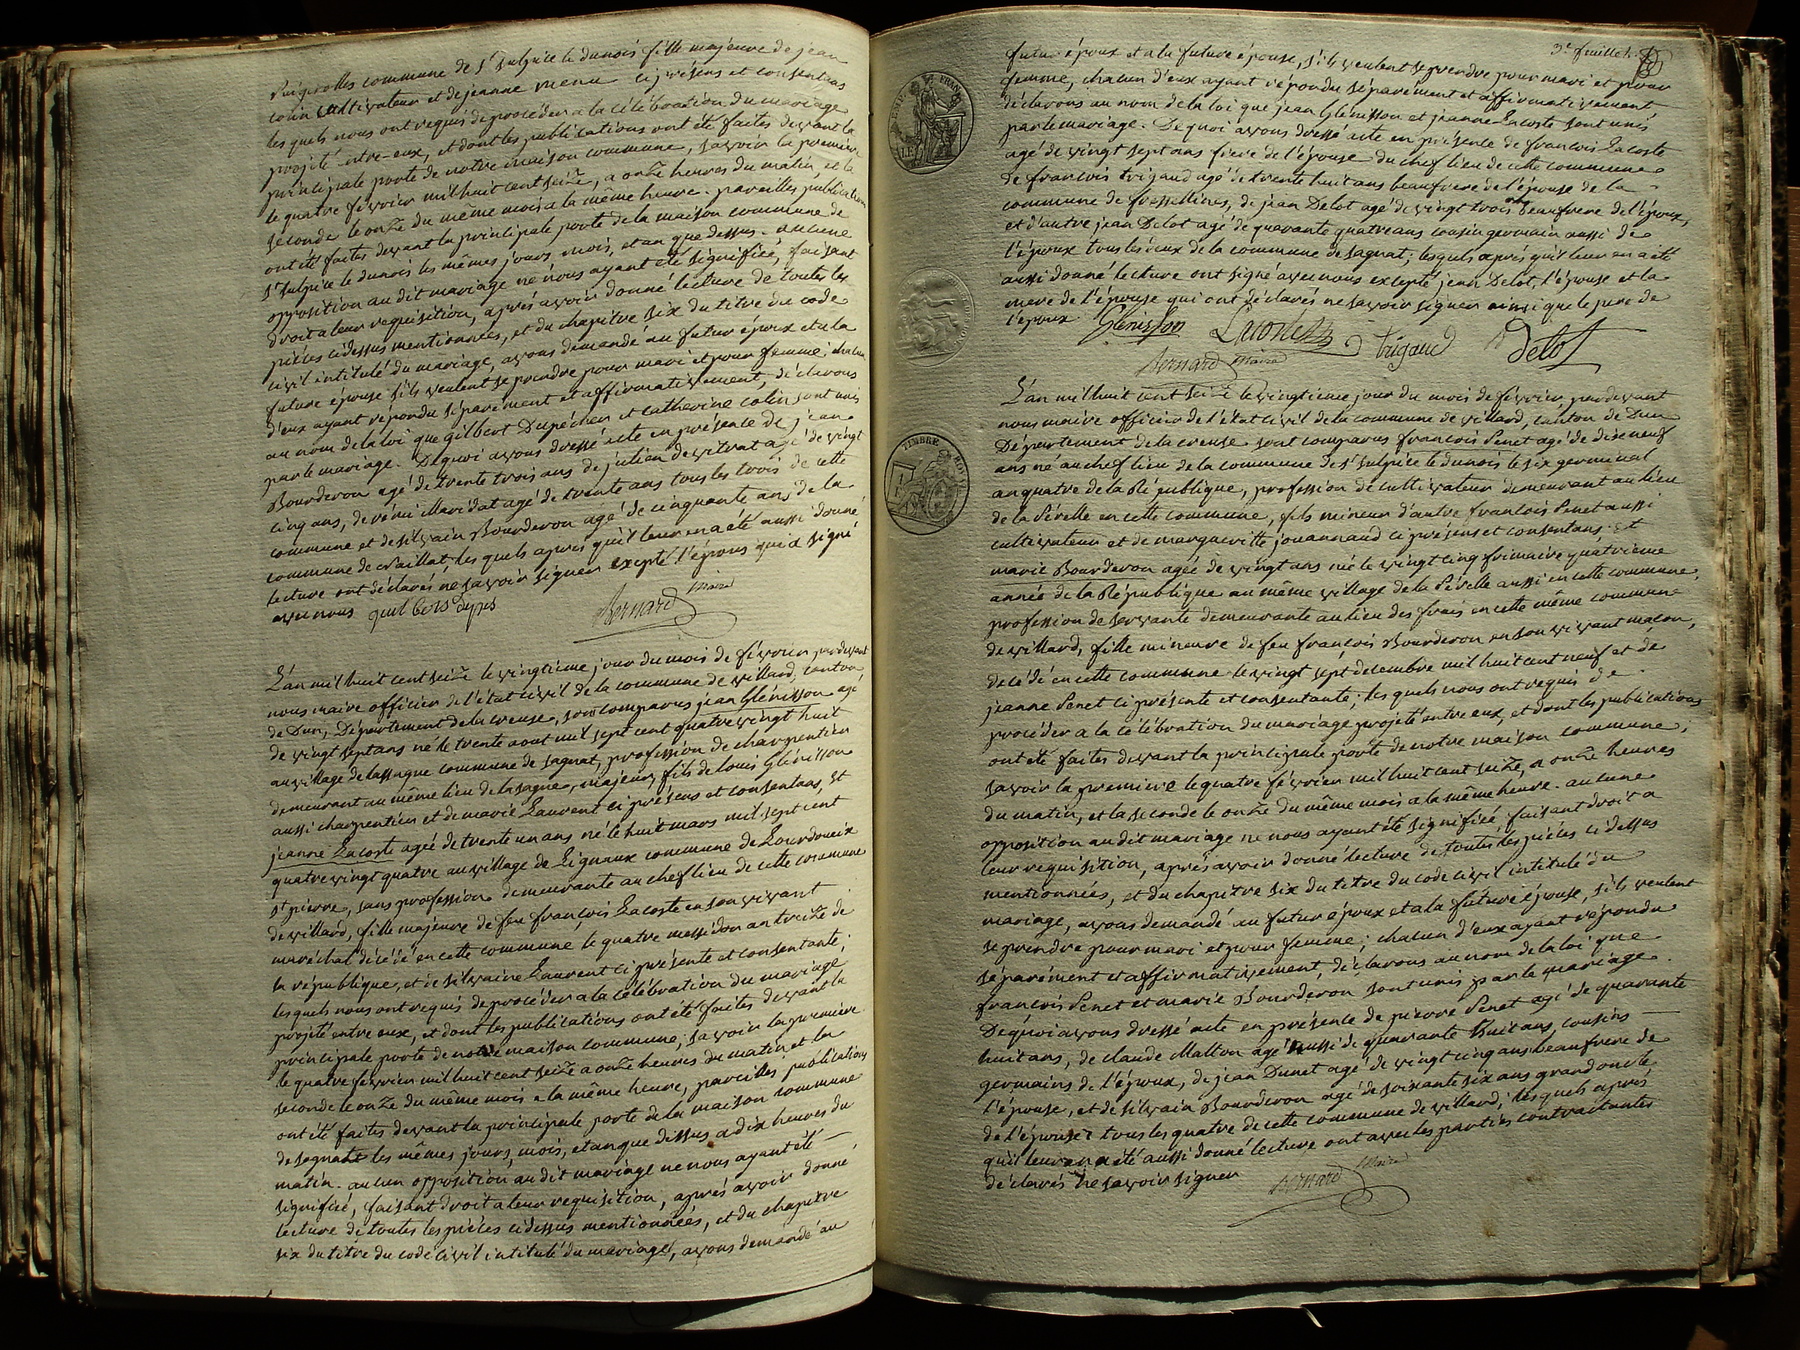 Puigerolles commune de St Sulpice le dunois fille majeure de jean
colin cultivateur et de jeanne menu ci présens et consentans
les quels nous ont requis de procéder a la célébration du mariage
projeté entre-eux, et dont les publications ont été faites devant la
principale porte de notre maison commune, savoir la premiere
le quatre février mil huit cent seize, a onze heures du matin, et la
seconde le onze du même mois a la même heure. pareilles publications
ont été faites devant la principale porte de la maison commune de
St Sulpice le dunois les mêmes jours mois, et an que dessus. aucune
opposition au dit mariage ne nous ayant été signifiée, faisant
droit a leur requisition, après avoir donné lecture de toutes les
pièces cidessus mentionnées, et du chapitre six du titre du code
civil intitulé du mariage, avons demandé au futur époux et a la
future épouse s'ils veulent se prendre pour mari et pour femme; chacun
d'eux ayant répondu séparément et affirmativement, déclarons
au nom de la loi que gilbert Dupécher et catherine colin sont unis
par le mariage. De quoi avons dressé acte en présence de jean
Bourderon agé de trente trois ans de julien devitrat agé de vingt
cinq ans, de rémi Maridat agé de trente ans tous les trois de cette
commune et de silvain Bourderon agé de cinquante ans de la
commune de craillat, les quels après qu'il leur en a été aussi donné
lecture ont déclarés ne savoir signer excepté l'époux qui a signé
avec nous
Bernard Maire
L'an mil huit cent seize le vingtième jour du mois de février pardevant
nous maire officier de l'état civil de la commune de villard, canton
de Dun, Département de la creuse, sont comparus jean Glénisson agé
de vingt sept ans né le trente aout mil sept cent quatre vingt huit
au village de lassagne commune de sagnat, profession de charpentier
demeurant au même lieu de lasagne, majeur, fils de louis Glénisson
aussi charpentier et de marie Laurent ci présens et consentans, Et
jeanne Lacoste agée de trente un ans né le huit mars mil sept cent
quatre vingt quatre au village de Lignaux commune de Lourdoueix
St pierre, sans profession demeurante au chef lieu de cette commune
de villard, fille majeure de feu françois Lacoste en son vivant
maréchal décédé en cette commune le quatre messidor an treize de
la république, et de silvaine Laurent ci présente et consentante;
lesquels nous ont requis de procéder a la célébration du mariage
projeté entre eux, et dont les publications ont été faites devant la
principale porte de notre maison commune; savoir la première
le quatre février mil huit cent seize a onze heures du matin et la
seconde le onze du même mois a la même heure, pareilles publications
ont été faites devant la principale porte de la maison commune
de sagnat les mêmes jours, mois, et an que dessus a dix heures du
matin. aucun opposition au dit mariage ne nous ayant été
signifiée, faisant droit a leur requisition, après avoir donné
lecture de toutes les pièces cidessus mentionnées, et du chapitre
six du titre du code civil intitulé du mariage, avons demandé au
3e feuillet
futur époux et a la future épouse, s'ils veulent se prendre pour mari et pour
femme, chacun d'eux ayant répondu séparément et affirmativement
déclarons au nom de la loi que jean Glénisson et jeanne Lacoste sont unis
par le mariage. De quoi avons dressé acte en présence de françois Lacoste
agé de vingt sept ans frere de l'épouse du chef lieu de cette commune
de françois trigaud agé de trente huit ans beaufrere de l'épouse de la
commune de fresselines, de jean Delot agé de vingt trois ans beaufrere de l'époux,
et d'autre jean Delot agé de quarante quatre ans cousin germain aussi de
l'époux tous les deux de la commune de sagnat; lesquels après qu'il leur en a été
aussi donné lecture ont signé avec nous excepté jean Delot, l'épouse et la
mere de l'épouse qui ont déclarés ne savoir signer ainsi que le pere de
l'époux. Glénisson Lacoste trigaud Delot
Bernard Maire
TIMBRE ROYAL
L'an mil huit cent seize le vingtieme jour du mois de février, pardevant
nous maire officier de l'état civil de la commune de villard, canton de Dun
Département de la creuse sont comparus francois Penet agé de dix neuf
ans né au chef lieu de la commune de St sulpice le dunois le six germinal
an quatre de la République, profession de cultivateur demeurant au lieu
de la Pérelle en cette commune, fils mineur d'autre francois Penet aussi
cultivateur et de margueritte jouannaud ci présens et consentans; Et
marie Bourderon agée de vingt ans née le vingt cinq frimaire quatrième
année de la République au même village de la Pérelle aussi en cette commune,
profession de servante demeurante au lieu des frais en cette même commune
de villard, fille mineure de feu françois Bourderon en son vivant maçon,
décédé en cette commune le vingt sept decembre mil huit cent neuf et de
jeanne Penet ci présente et consentante; les quels nous ont requis de
procéder a la célébration du mariage projeté entre eux, et dont les publications
ont été faites devant la principale porte de notre maison commune;
savoir la premiere le quatre février mil huit cent seize, a onze heures
du matin, et la seconde le onze du même mois a la même heure. aucune
opposition au dit mariage ne nous ayant été signifiée, faisant droit a
leur requisition, après avoir donné lecture de toutes les pièces cidessus
mentionnées, et du chapitre six du titre du code civil intitulé du
mariage, avons demandé au futur époux et a la future épouse, s'ils veulent
se prendre pour mari et pour femme; chacun d'eux ayant répondu
séparément et affirmativement, déclarons au nom de la loi que
françois Penet et marie Bourderon sont unis par le mariage.
De quoi avons dressé acte en présence de pierre Penet agé de quarante
huit ans, de claude Malton agé aussi de quarante huit ans, cousins
germains de l'époux, de jean Dunet agé de vingt cinq ans beaufrere de
l'épouse, et de silvain Bourderon agé de soixante six ans grand oncle
de l'épouse tous les quatre de cette commune de villard; les quels après
qu'il leur en a été aussi donné lecture ont avec les parties contractantes
déclarés ne savoir signer Bernard Maire